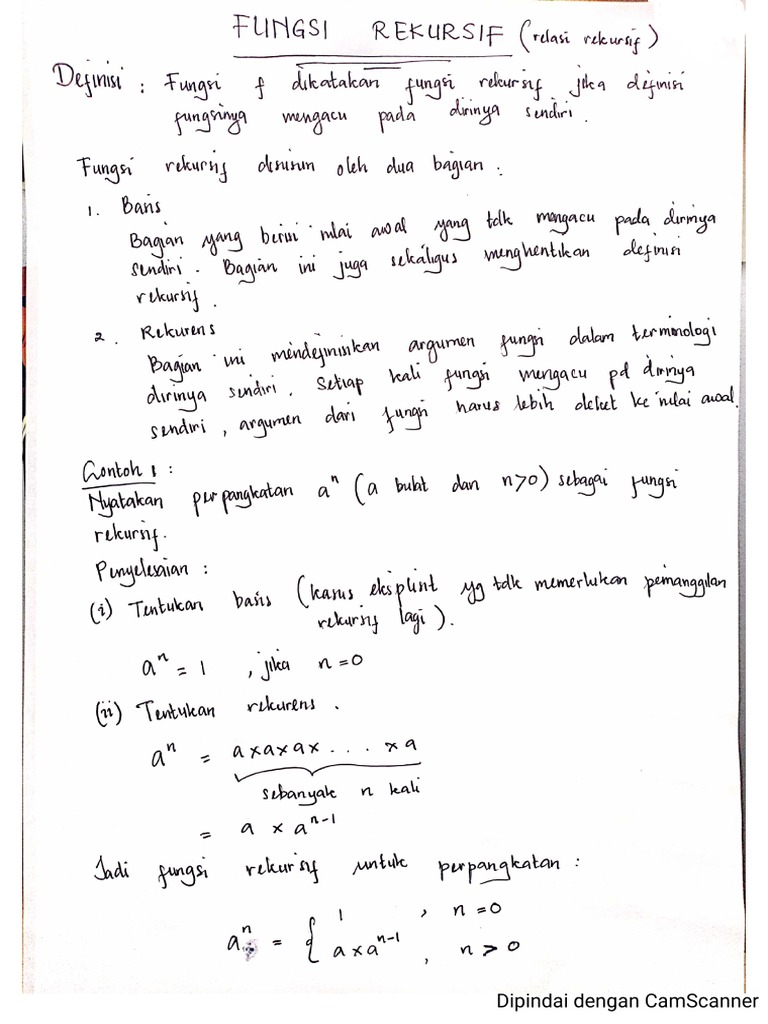 FUNGSI REKURSIF (relasi rekursif)
Definisi : Fungsi f dikatakan fungsi rekursif jika definisi
fungsinya mengacu pada dirinya sendiri.
Fungsi rekursif disusun oleh dua bagian :
1. Basis
Bagian yang berisi nilai awal yang tdk mengacu pada dirinya
sendiri. Bagian ini juga sekaligus menghentikan definisi
rekursif.
2. Rekurens
Bagian ini mendefinisikan argumen fungsi dalam terminologi
dirinya sendiri. Setiap kali fungsi mengacu pd dirinya
sendiri, argumen dari fungsi harus lebih dekat ke nilai awal.
Contoh 1 :
Nyatakan perpangkatan aⁿ (a bulat dan n>0) sebagai fungsi
rekursif.
Penyelesaian :
(i) Tentukan basis (kasus eksplisit yg tdk memerlukan pemanggilan
rekursif lagi).
aⁿ = 1 , jika n=0
(ii) Tentukan rekurens.
aⁿ = a×a×a× . . . ×a
sebanyak n kali
= a × aⁿ⁻¹
Jadi fungsi rekursif untuk perpangkatan :
1 , n=0
aⁿ = {
a×aⁿ⁻¹ , n > 0
Dipindai dengan CamScanner